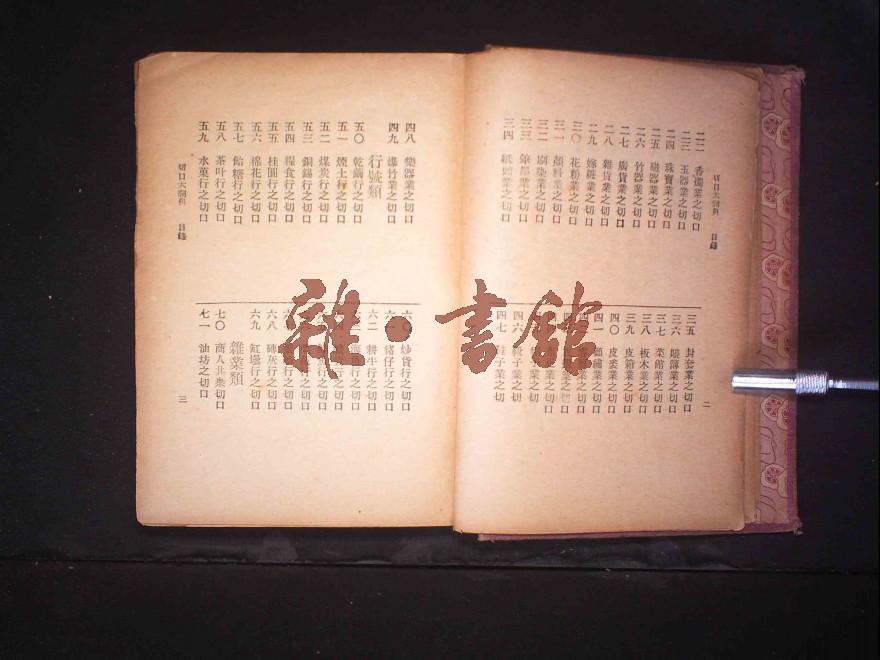 切口大詞典 目錄
二二 香燭業之切口
二三 玉器業之切口
二四 珠寶業之切口
二五 磁器業之切口
二六 竹器業之切口
二七 廚貨業之切口
二八 雜貨業之切口
二九 嫁粧業之切口
三〇 花粉業之切口
三一 顏料業之切口
三二 刷染業之切口
三三 筆墨業之切口
三四 紙頭業之切口
三五 封套業之切口
三六 賬簿業之切口
三七 菜館業之切口
三八 板木業之切口
三九 皮箱業之切口
四〇 皮裘業之切口
四一 顧繡業之切口
四六 靴子業之切
四七 鞋子業之切
二
四八 樂器業之切口
四九 爆竹業之切口
行號類
五〇 乾繭行之切口
五一 煙土行之切口
五二 煤炭行之切口
五三 銅錫行之切口
五四 糧食行之切口
五五 桂圓行之切口
五六 棉花行之切口
五七 飴糖行之切口
五八 茶叶行之切口
五九 水菓行之切口
切口大詞典 目錄
六〇 炒貨行之切口
六一 豬仔行之切口
六二 耕牛行之切口
行之切口
行之切口
行之切口
行之切口
行之切口
六八 磚灰行之切口
六九 缸罎行之切口
雜業類
七〇 商人共衆切口
七一 油坊之切口
三
雜·書館